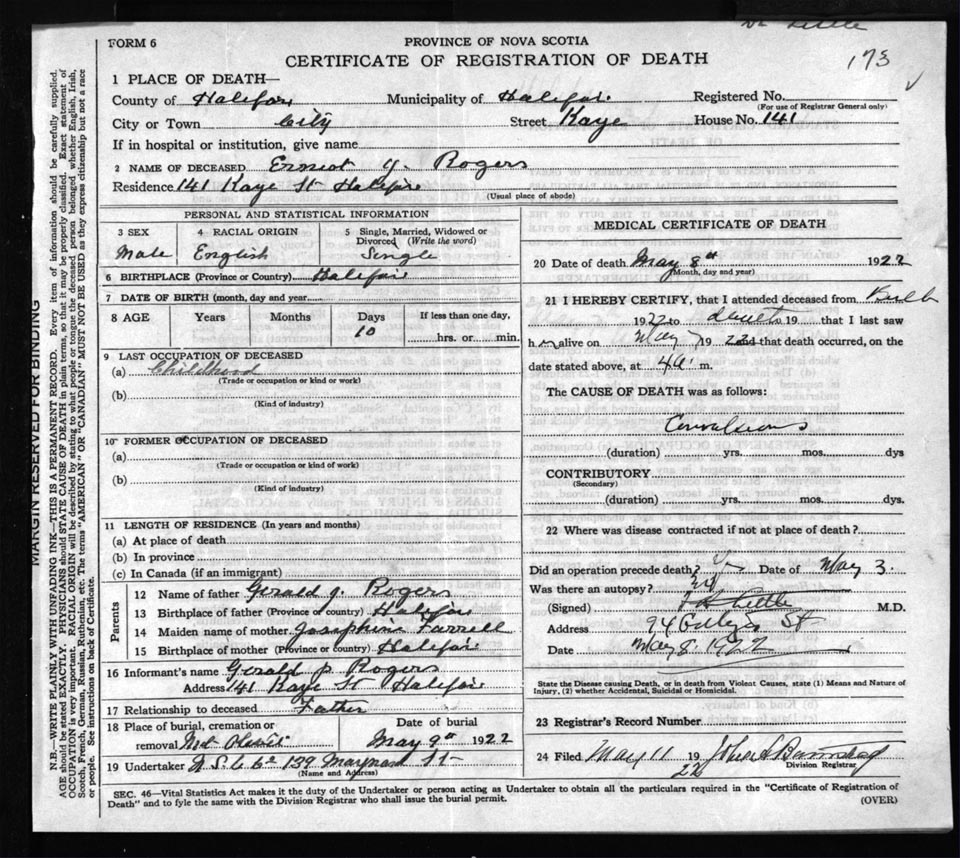 Dr Little
FORM 6
PROVINCE OF NOVA SCOTIA
173
CERTIFICATE OF REGISTRATION OF DEATH
1 PLACE OF DEATH—
County of Halifax Municipality of Halifax Registered No.
(For use of Registrar General only)
City or Town City Street Kaye House No. 141
If in hospital or institution, give name
2 NAME OF DECEASED Ernest J. Rogers
Residence 141 Kaye St Halifax
(Usual place of abode)
PERSONAL AND STATISTICAL INFORMATION
3 SEX 4 RACIAL ORIGIN 5 Single, Married, Widowed or Divorced (Write the word)
Male English Single
6 BIRTHPLACE (Province or Country) Halifax
7 DATE OF BIRTH (month, day and year)
8 AGE Years Months Days If less than one day,
10 hrs. or min.
9 LAST OCCUPATION OF DECEASED
(a) Childhood
(Trade or occupation or kind or work)
(b)
(Kind of industry)
10 FORMER OCCUPATION OF DECEASED
(a)
(Trade or occupation or kind of work)
(b)
(Kind of industry)
11 LENGTH OF RESIDENCE (In years and months)
(a) At place of death
(b) In province
(c) In Canada (if an immigrant)
Parents
12 Name of father Gerald J. Rogers
13 Birthplace of father (Province or country) Halifax
14 Maiden name of mother Josephine Farrell
15 Birthplace of mother (Province or country) Halifax
16 Informant's name Gerald P. Rogers
Address 141 Kaye St Halifax
17 Relationship to deceased Father
18 Place of burial, cremation or removal Mt Olivet
Date of burial May 9th 1922
19 Undertaker N.S.U. Co 139 Maynard St
(Name and Address)
MEDICAL CERTIFICATE OF DEATH
20 Date of death May 8th 1922
(Month, day and year)
21 I HEREBY CERTIFY, that I attended deceased from Birth
1922 to death 19 that I last saw
h m alive on May 7 1922 and that death occurred, on the
date stated above, at m.
The CAUSE OF DEATH was as follows:
Convulsions
(duration) yrs. mos. dys
CONTRIBUTORY
(Secondary)
(duration) yrs. mos. dys.
22 Where was disease contracted if not at place of death?
Did an operation precede death? Date of May 3.
Was there an autopsy?
(Signed) Little M.D.
Address 94 College St
Date May 8. 1922
State the Disease causing Death, or in death from Violent Causes, state (1) Means and Nature of
Injury, (2) whether Accidental, Suicidal or Homicidal.
23 Registrar's Record Number
24 Filed May 11 1922 John
Division Registrar
SEC. 46—Vital Statistics Act makes it the duty of the Undertaker or person acting as Undertaker to obtain all the particulars required in the "Certificate of Registration of
Death" and to fyle the same with the Division Registrar who shall issue the burial permit.
(OVER)
MARGIN RESERVED FOR BINDING
N.B.—WRITE PLAINLY WITH UNFADING INK—THIS IS A PERMANENT RECORD. Every item of information should be carefully supplied.
AGE should be stated EXACTLY. PHYSICIANS should STATE CAUSE OF DEATH in plain terms, so that it may be properly classified. Exact statement of
OCCUPATION is very important. RACIAL ORIGIN will be described by stating to what people or tongue the deceased person belonged whether English, Irish,
Scotch, French, German, Russian, Ruthenian, etc. The terms "AMERICAN" or "CANADIAN" MUST NOT BE USED as they express citizenship but not a race
or people. See instructions on back of Certificate.